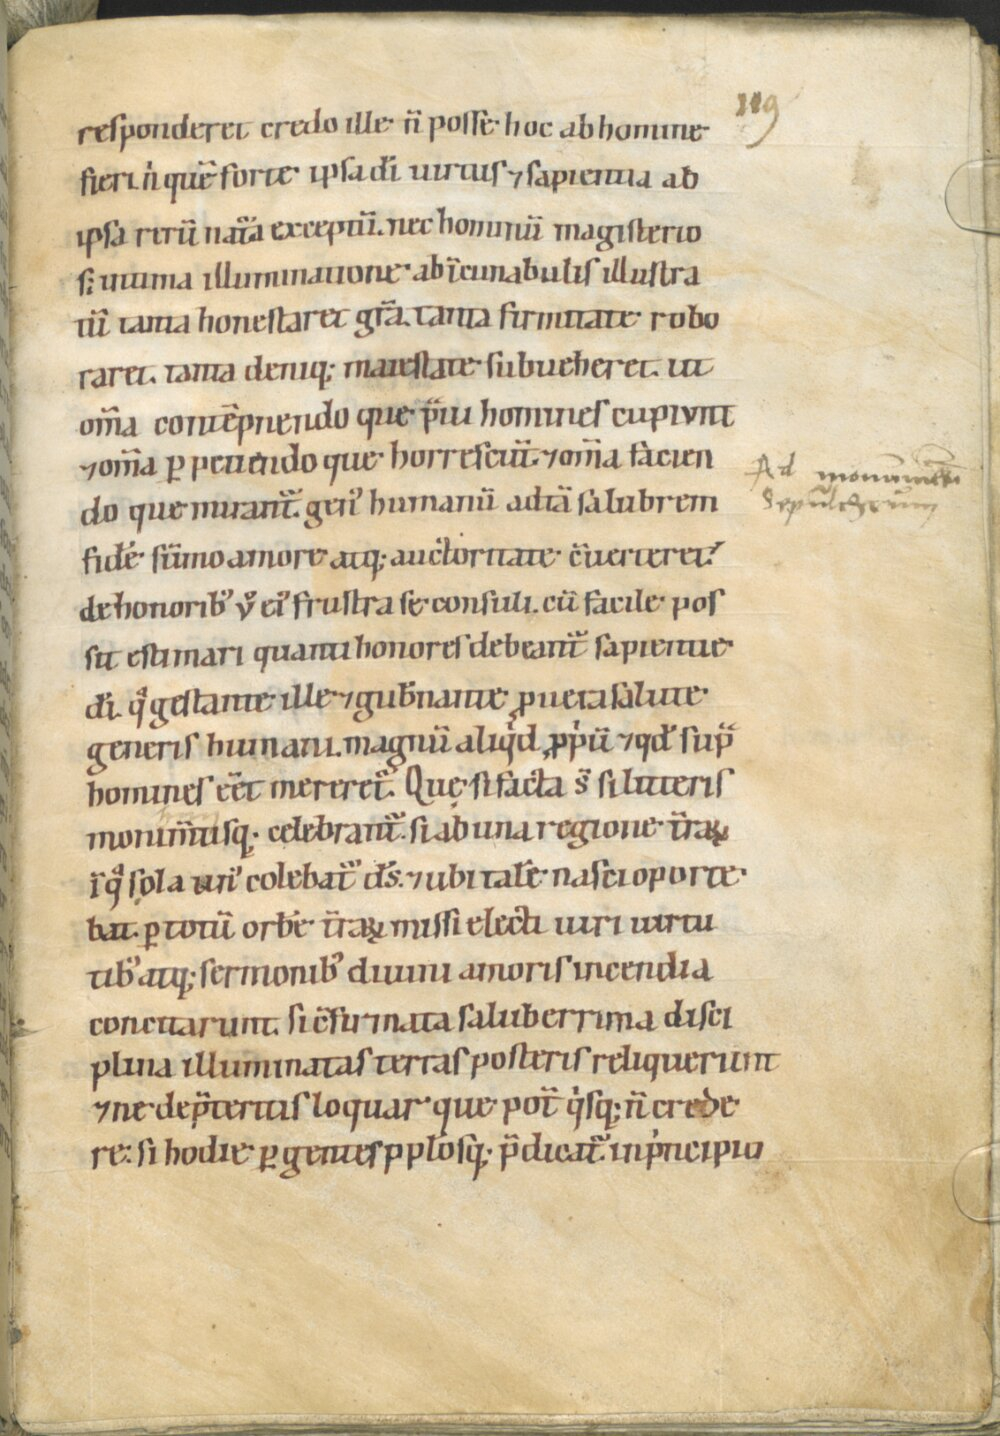 119
responderet credo ille n̄ posse hoc ab homine
fieri ni quē forte ipsa dī uirtus ⁊ sapientia ab
ipsa rerū nat̄a exceptū. nec hominū magisterio
s; intima illuminatione ab īcunabulis illustra
tū tanta honestaret gr̄a. tanta firmitate robo
raret. tanta deniq; maiestate subueheret. ut
om̄a contēpnendo que p̄ui homines cupiunt
⁊ om̄a ꝑpetiendo que horrescūt. ⁊ om̄a facien
do que mirant᷑. genꝰ humanū ad tā salubrem
fidē sūmo amore atq; auctoritate c̄uerteret.
de honoribꝰ ů eiꝰ frustra se consuli. cū facile pos
sit estimari quanti honores debeant᷑ sapientie
dī. qͣ gestante ille ⁊ gub̄nante ꝓ uera salute
generis humani. magnū aliqͥd ꝓpͥū ⁊ qd̄ sup̄
homines eēt mereret᷑. Que si facta s̄ si litteris
monim̄tisq; celebrant᷑. si ab una regione t̄raꝝ
ī qͣ sola unꝰ colebat᷑ d̄s. ⁊ ubi talē nasci oporte
bat. ꝑ totū orbē t̄raꝝ missi electi uiri uirtu
tibꝰ atq; sermonibꝰ diuini amoris incendia
concitarunt. si c̄firmata saluberrima disci
plina illuminatas terras posteris reliquerunt
⁊ ne de p̄teritis loquar que pot̄ qͥsq; n̄ crede
re: si hodie ꝑ gentes pplōsq; p̄dicat᷑. in pͥncipio
Ad monumēti
Sepulchrum